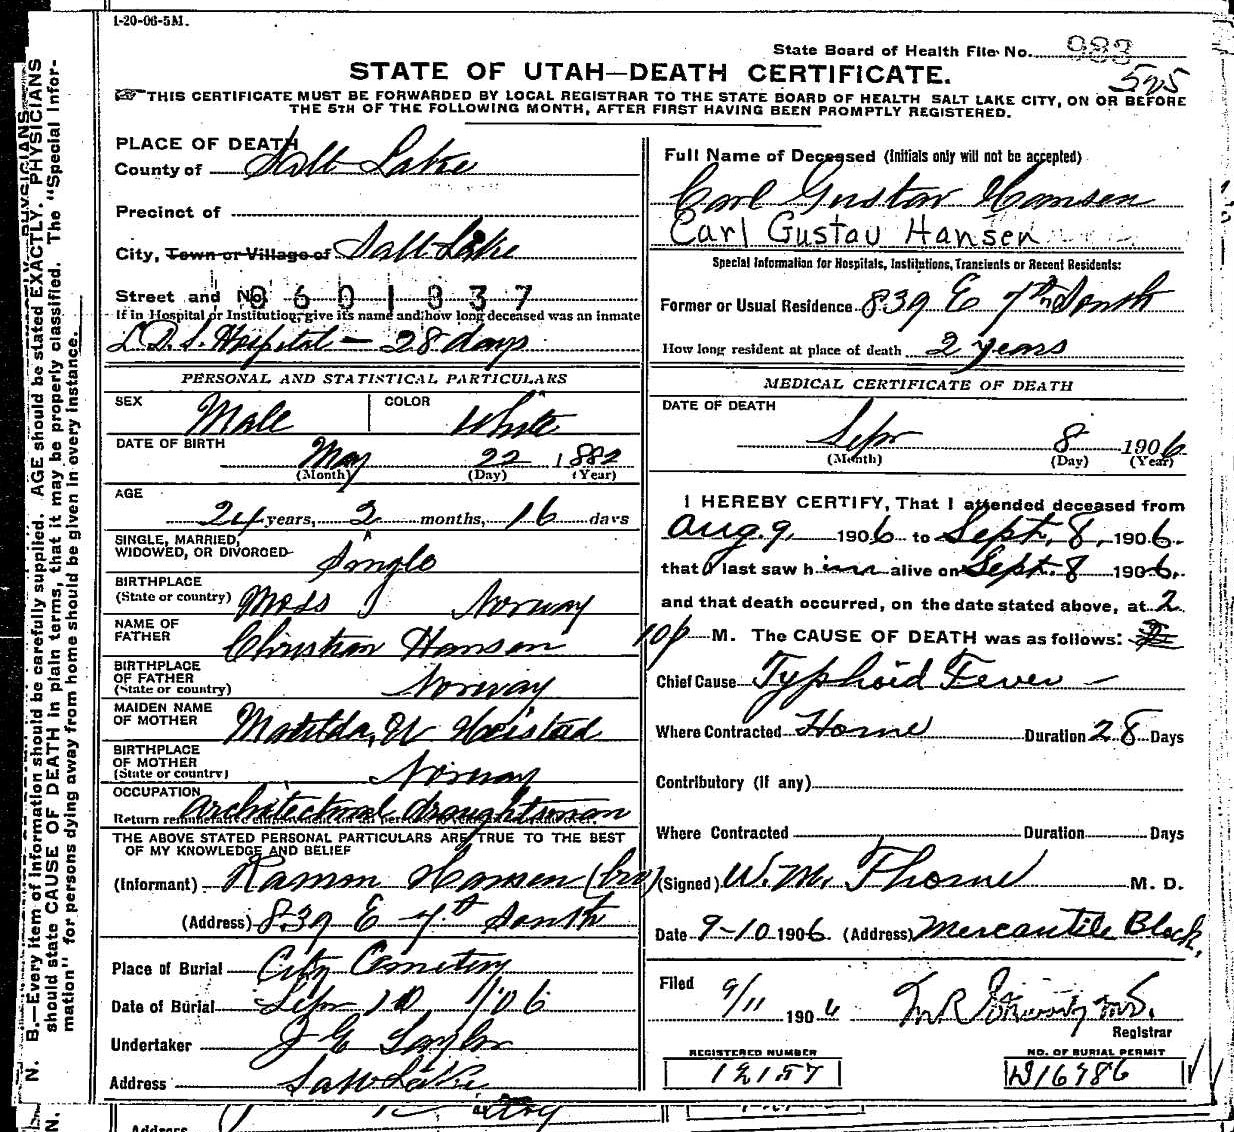 1-20-06-5M.
State Board of Health File No. 983
525
STATE OF UTAH—DEATH CERTIFICATE.
THIS CERTIFICATE MUST BE FORWARDED BY LOCAL REGISTRAR TO THE STATE BOARD OF HEALTH SALT LAKE CITY, ON OR BEFORE
THE 5TH OF THE FOLLOWING MONTH, AFTER FIRST HAVING BEEN PROMPTLY REGISTERED.
PLACE OF DEATH
County of Salt Lake
Precinct of
City, Town or Village of Salt Lake
Street and No. 0601837
If in Hospital or Institution, give its name and how long deceased was an inmate
L.D.S. Hospital — 28 days
PERSONAL AND STATISTICAL PARTICULARS
SEX Male COLOR White
DATE OF BIRTH
May 22 1882
(Month) (Day) (Year)
AGE
24 years, 3 months, 16 days
SINGLE, MARRIED,
WIDOWED, OR DIVORCED Single
BIRTHPLACE
(State or country) Moss Norway
NAME OF
FATHER Christian Hansen
BIRTHPLACE
OF FATHER
(State or country) Norway
MAIDEN NAME
OF MOTHER Matilda W Heistad
BIRTHPLACE
OF MOTHER
(State or country) Norway
OCCUPATION Architectural draughtsman
THE ABOVE STATED PERSONAL PARTICULARS ARE TRUE TO THE BEST
OF MY KNOWLEDGE AND BELIEF
(Informant) Ramon Hansen (bro)
(Address) 839 E 7th South
Place of Burial City Cemetery
Date of Burial Sepr 10 1906
Undertaker J E Taylor
Address Salt Lake
Full Name of Deceased (Initials only will not be accepted)
Carl Gustav Hansen
Carl Gustav Hansen
Special Information for Hospitals, Institutions, Transients or Recent Residents:
Former or Usual Residence 839 E 7th South
How long resident at place of death 2 years
MEDICAL CERTIFICATE OF DEATH
DATE OF DEATH
Sepr 8 1906
(Month) (Day) (Year)
I HEREBY CERTIFY, That I attended deceased from
Aug. 9 1906 to Sept. 8, 1906.
that I last saw him alive on Sept. 8 1906.
and that death occurred, on the date stated above, at 2
10 p M. The CAUSE OF DEATH was as follows:
Chief Cause Typhoid Fever —
Where Contracted Home Duration 28 Days
Contributory (if any)
Where Contracted Duration Days
(Signed) W. M. Thorne M. D.
Date 9-10 1906. (Address) Mercantile Block.
Filed 9/11 1906
Registrar
REGISTERED NUMBER
12157
NO. OF BURIAL PERMIT
D16786
N. B.—Every item of information should be carefully supplied. AGE should be stated EXACTLY. PHYSICIANS
should state CAUSE OF DEATH in plain terms, that it may be properly classified. The "Special Infor-
mation" for persons dying away from home should be given in every instance.
N.
Address